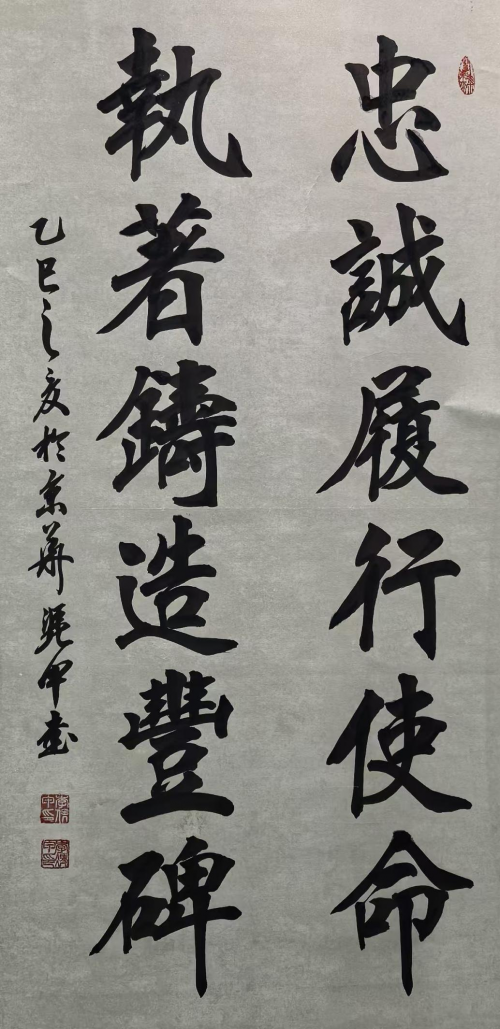 忠誠履行使命
執著鑄造豐碑
乙巳之夏於京華 甲書